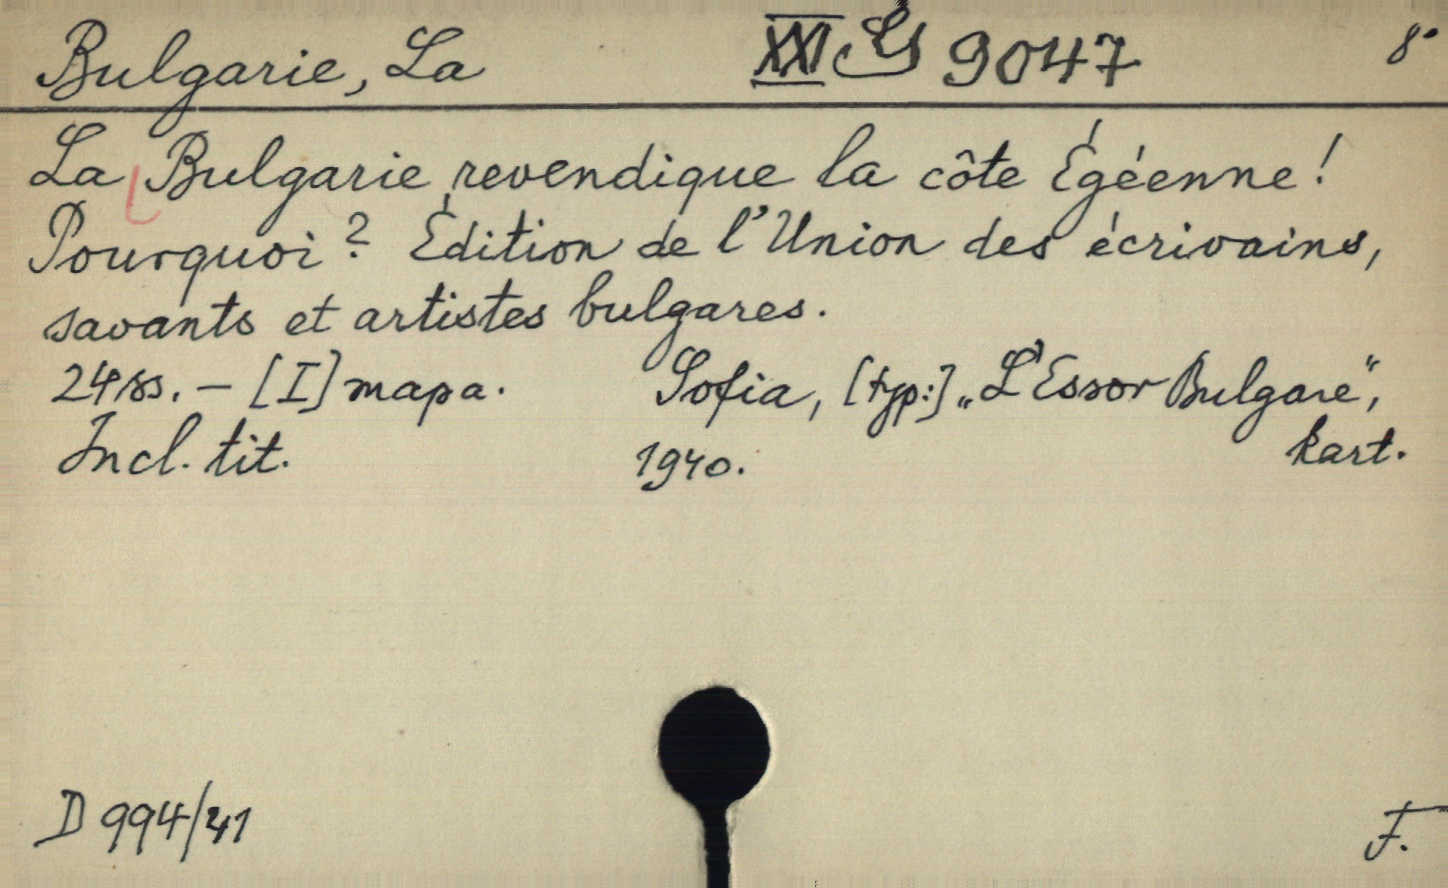 Bulgarie, La XXI G 9047 8°
La Bulgarie revendique la côte Égéenne!
Pourquoi? Édition de l'Union des écrivains,
savants et artistes bulgares.
24 ss. – [I] mapa. Sofia, [typ:] „L'Essor Bulgare“,
Incl. tit. 1940. kart.
D 994/41 F.